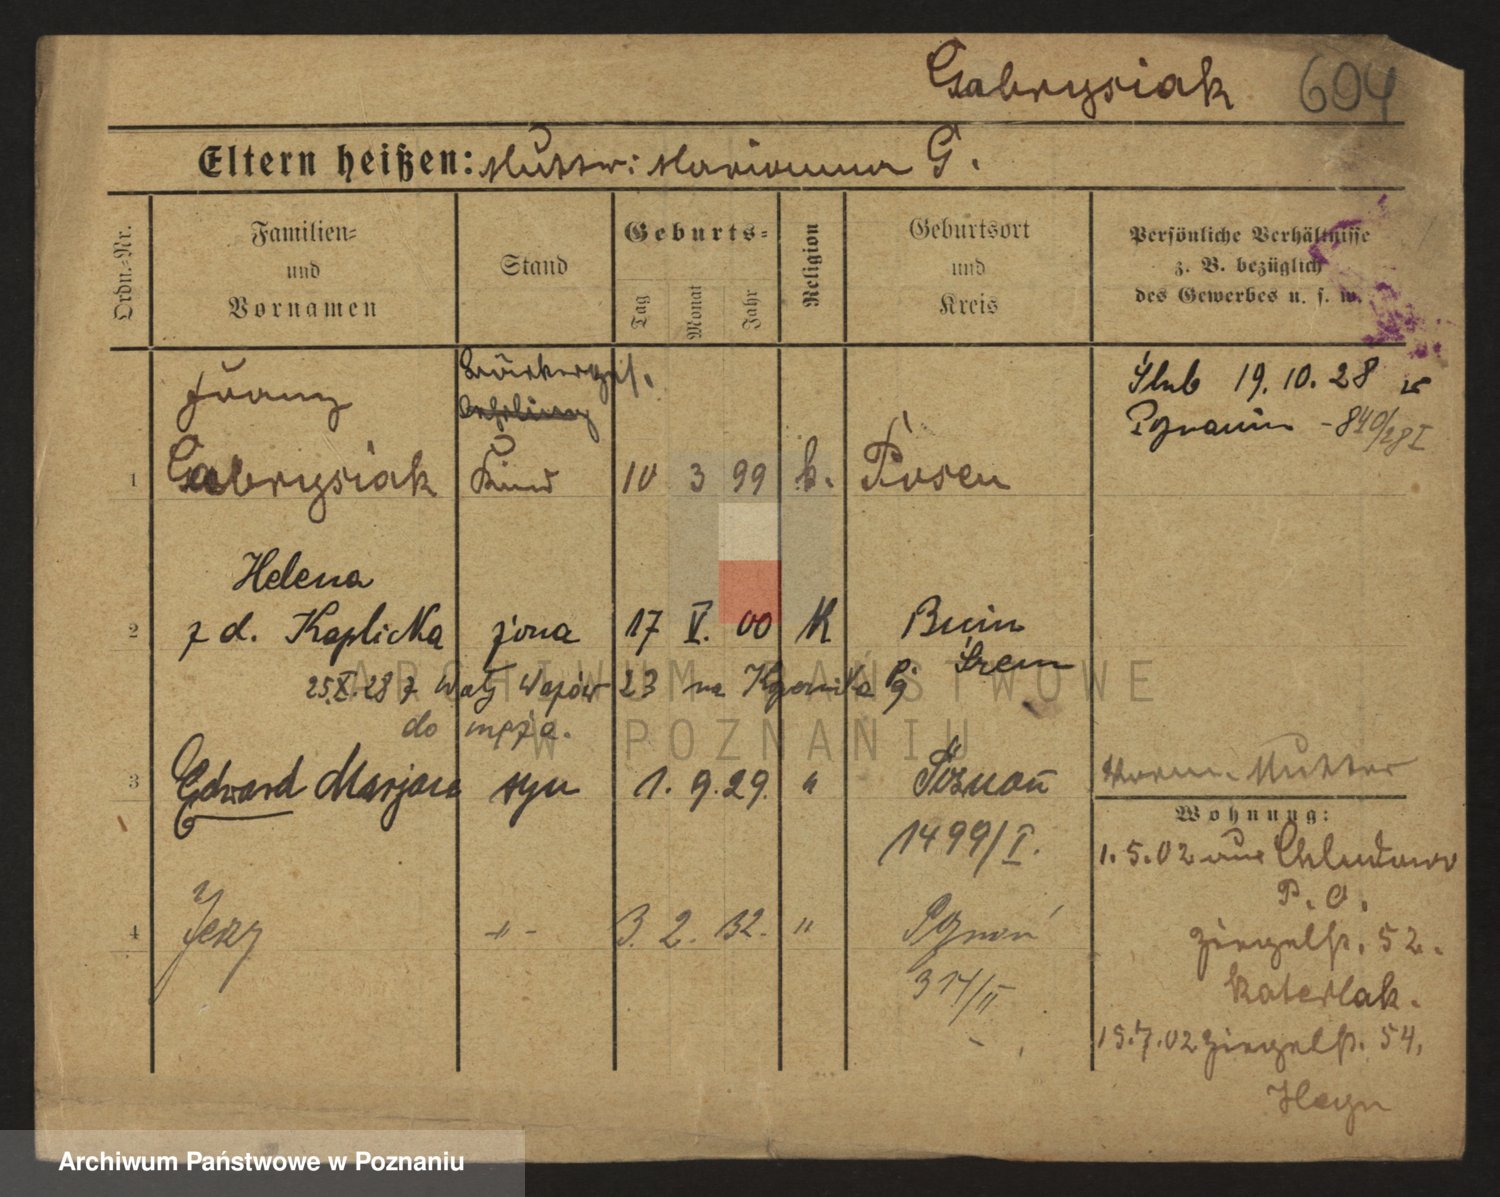 Gabrysiak 694
Eltern heißen: Mutter: Marianna G.
Ordn.-Nr.
Familien- und Vornamen
Stand
Geburts-
Tag Monat Jahr
Religion
Geburtsort und Kreis
Persönliche Verhältnisse z. B. bezüglich des Gewerbes u. s. w.
Franz
Lehrling
Ślub 19.10.28 w
Poznaniu - 840/28 I
1 Gabrysiak Kind 10 3 99 k. Posen
Helena
2 z d. Kaplicka żona 17 V. 00 K Bnin
Śrem
25.X.28 z Wały Wazów 23 na
do męża.
3 Edward Marjan syn 1. 9. 29. " Poznań
1499/I.
4 Jerzy -"- 3. 2. 32. " Poznań
314/II
Vorm. Mutter
Wohnung:
1.5.02 aus Chludowo
P. O.
Ziegelstr. 52.
Rateslak.
15.7.02 Ziegelstr. 54.
Heyn
ARCHIWUM PAŃSTWOWE
W POZNANIU
Archiwum Państwowe w Poznaniu